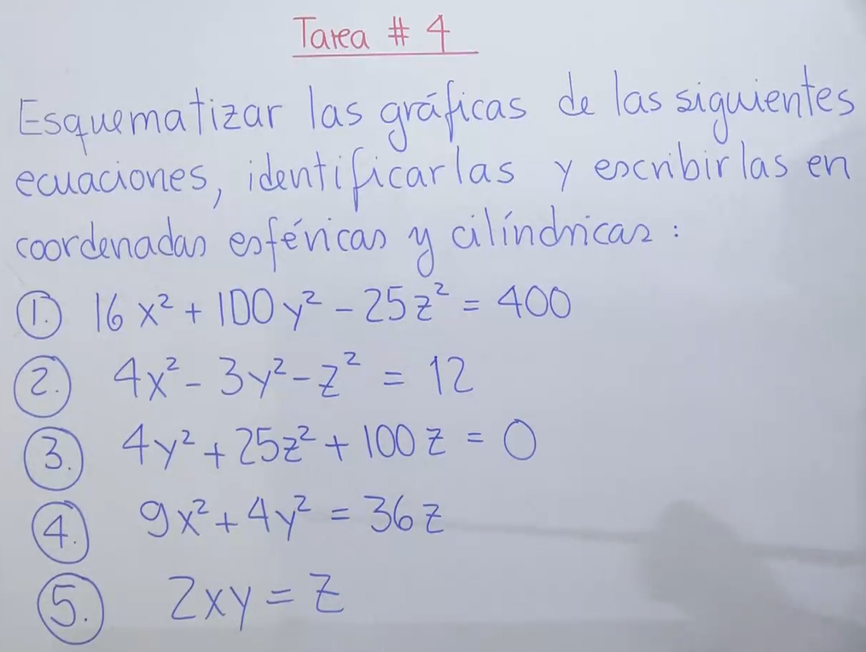 Tarea # 4
Esquematizar las gráficas de las siguientes
ecuaciones, identificarlas y escribirlas en
coordenadas esféricas y cilíndricas:
1. 16x² + 100y² - 25z² = 400
2. 4x² - 3y² - z² = 12
3. 4y² + 25z² + 100z = 0
4. 9x² + 4y² = 36z
5. 2xy = z